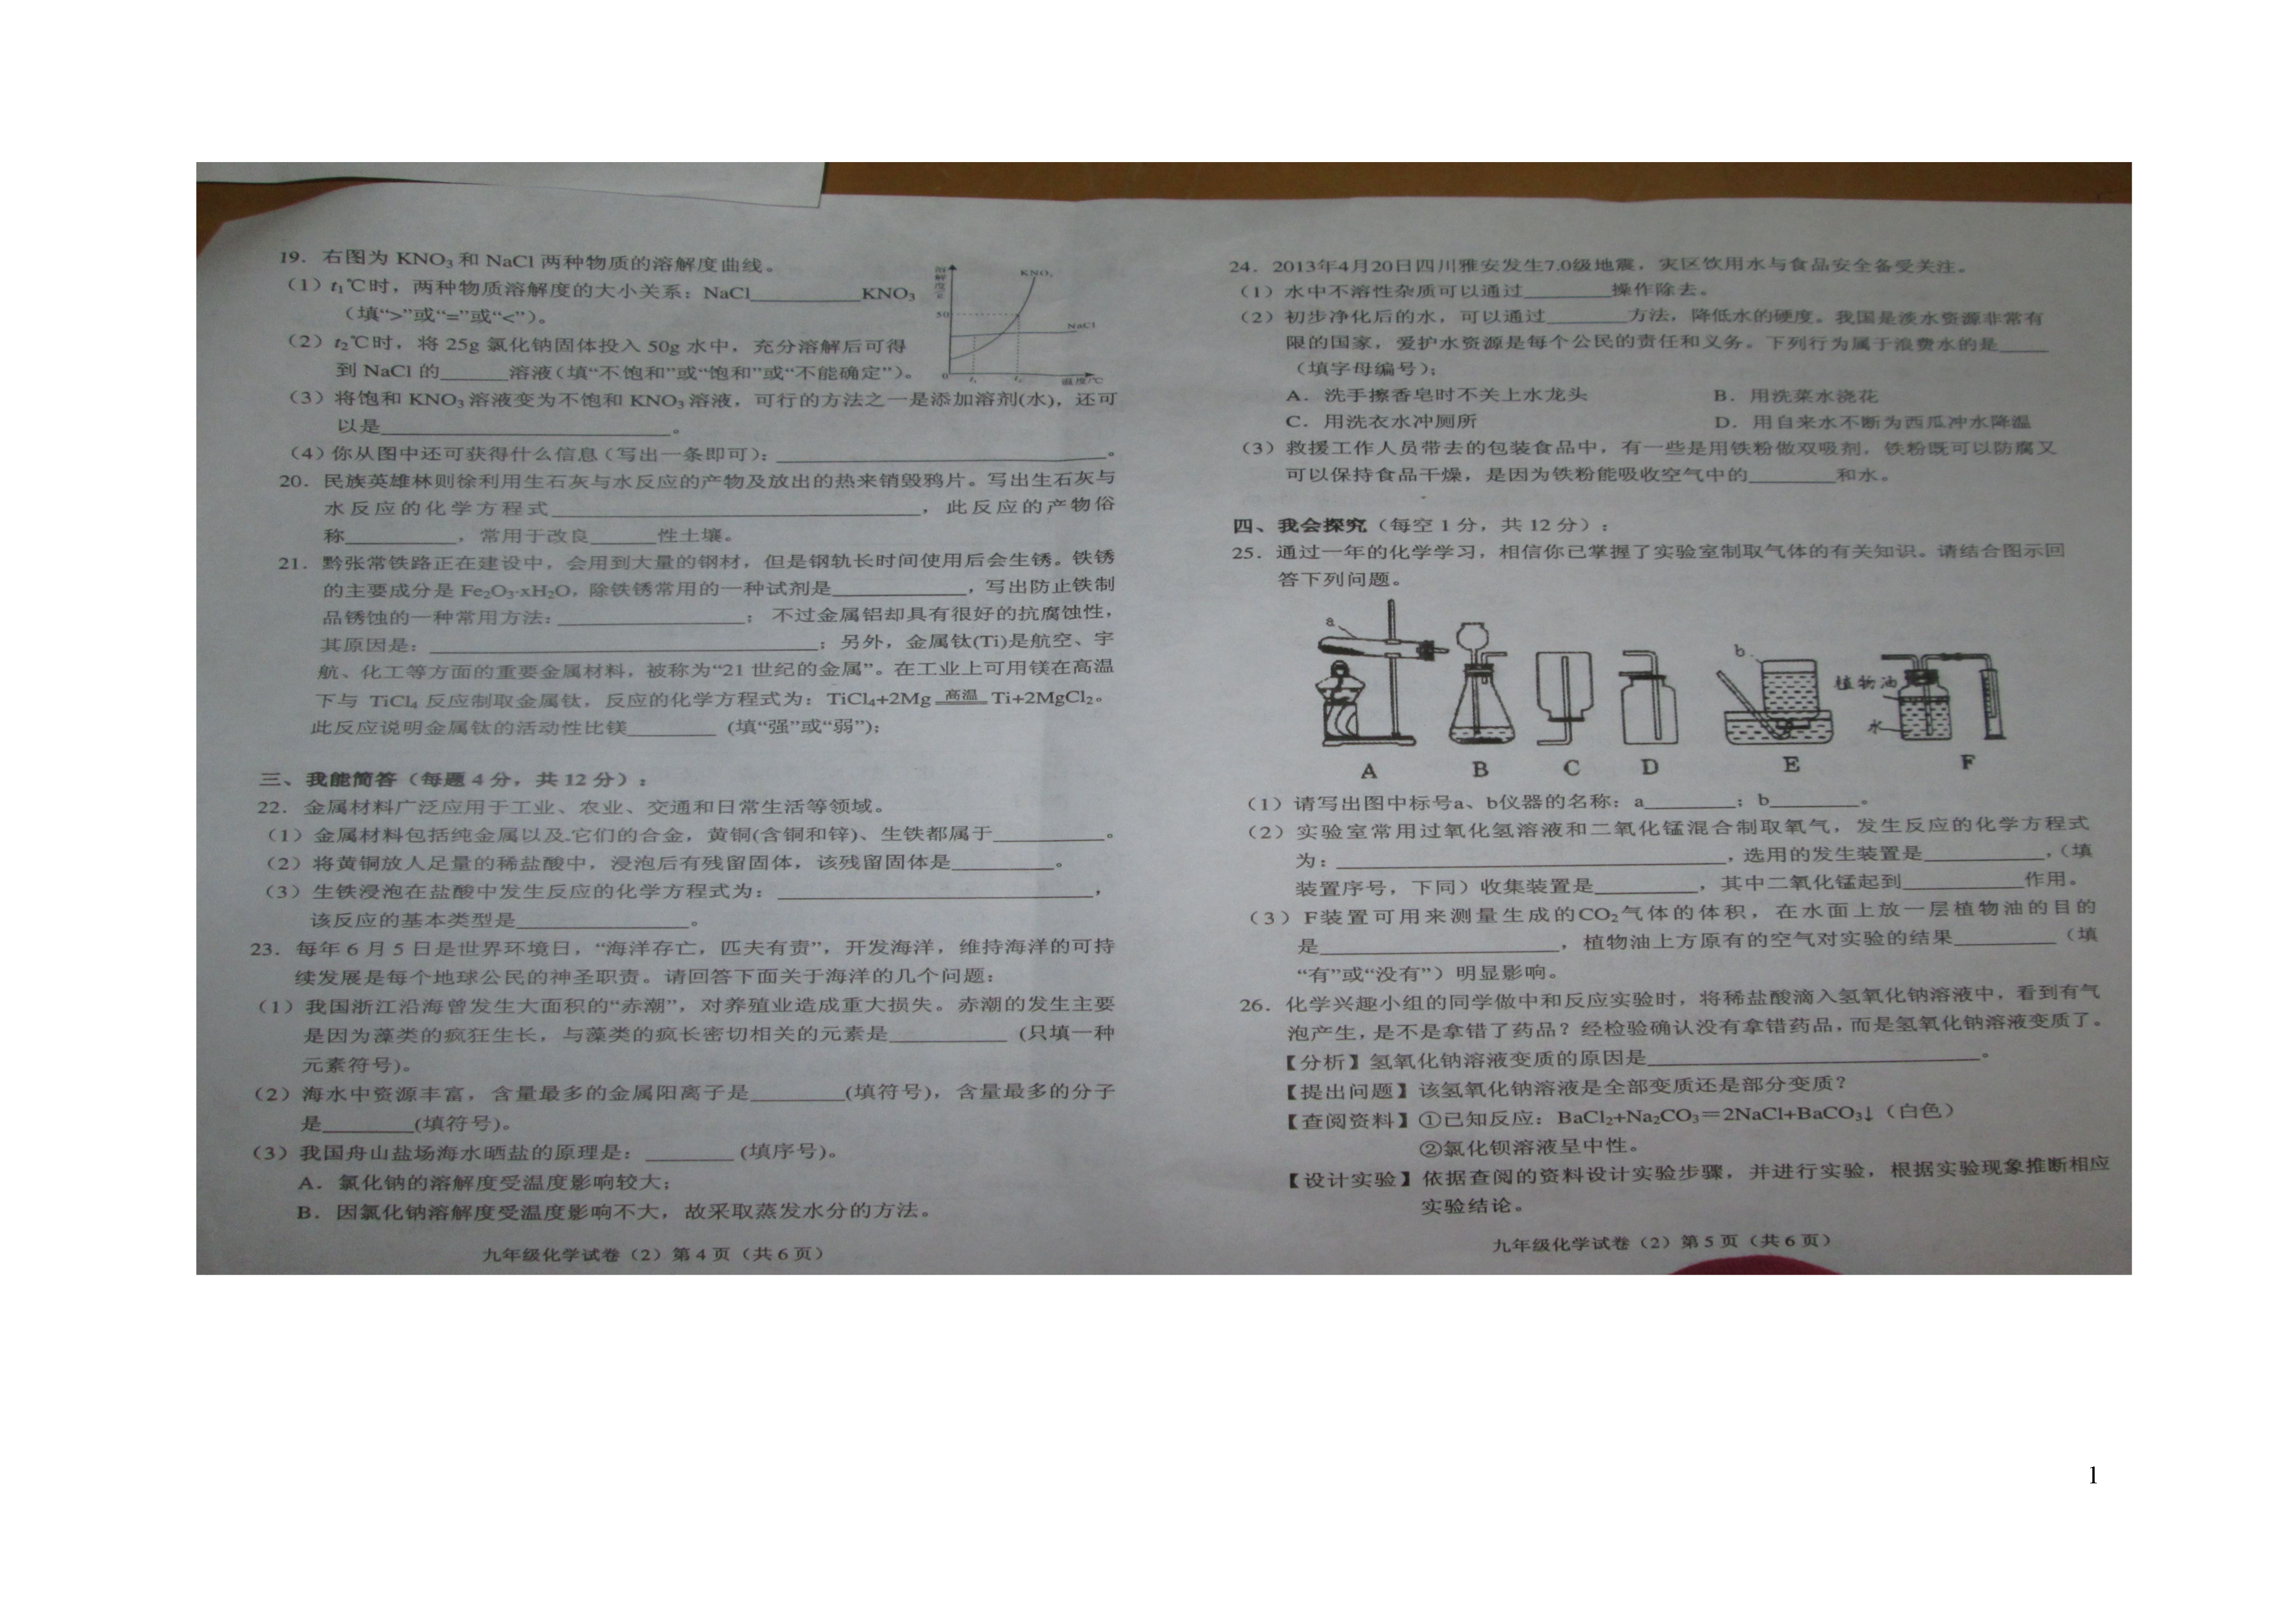 19．右图为 KNO₃ 和 NaCl 两种物质的溶解度曲线。
（1）t₁℃时，两种物质溶解度的大小关系：NaCl__________KNO₃
（填“>”或“=”或“<”）。
（2）t₂℃时，将 25g 氯化钠固体投入 50g 水中，充分溶解后可得
到 NaCl 的______溶液（填“不饱和”或“饱和”或“不能确定”）。
（3）将饱和 KNO₃ 溶液变为不饱和 KNO₃ 溶液，可行的方法之一是添加溶剂(水)，还可
以是__________________________。
（4）你从图中还可获得什么信息（写出一条即可）：______________________________。
溶解度/g
KNO₃
50
NaCl
0 t₁ t₂ 温度/℃
20．民族英雄林则徐利用生石灰与水反应的产物及放出的热来销毁鸦片。写出生石灰与
水反应的化学方程式__________________________________，此反应的产物俗
称__________，常用于改良______性土壤。
21．黔张常铁路正在建设中，会用到大量的钢材，但是钢轨长时间使用后会生锈。铁锈
的主要成分是 Fe₂O₃·xH₂O，除铁锈常用的一种试剂是____________，写出防止铁制
品锈蚀的一种常用方法：_________________； 不过金属铝却具有很好的抗腐蚀性，
其原因是：____________________________________；另外，金属钛(Ti)是航空、宇
航、化工等方面的重要金属材料，被称为“21 世纪的金属”。在工业上可用镁在高温
下与 TiCl₄ 反应制取金属钛，反应的化学方程式为：TiCl₄+2Mg 高温 Ti+2MgCl₂。
此反应说明金属钛的活动性比镁________ (填“强”或“弱”)；
三、我能简答（每题 4 分，共 12 分）；
22．金属材料广泛应用于工业、农业、交通和日常生活等领域。
（1）金属材料包括纯金属以及它们的合金，黄铜(含铜和锌)、生铁都属于__________。
（2）将黄铜放人足量的稀盐酸中，浸泡后有残留固体，该残留固体是_________。
（3）生铁浸泡在盐酸中发生反应的化学方程式为：_____________________________，
该反应的基本类型是________________。
23．每年 6 月 5 日是世界环境日，“海洋存亡，匹夫有责”，开发海洋，维持海洋的可持
续发展是每个地球公民的神圣职责。请回答下面关于海洋的几个问题：
（1）我国浙江沿海曾发生大面积的“赤潮”，对养殖业造成重大损失。赤潮的发生主要
是因为藻类的疯狂生长，与藻类的疯长密切相关的元素是__________ (只填一种
元素符号)。
（2）海水中资源丰富，含量最多的金属阳离子是________(填符号)，含量最多的分子
是________(填符号)。
（3）我国舟山盐场海水晒盐的原理是：________ (填序号)。
A．氯化钠的溶解度受温度影响较大；
B．因氯化钠溶解度受温度影响不大，故采取蒸发水分的方法。
九年级化学试卷（2）第 4 页（共 6 页）
24．2013年4月20日四川雅安发生7.0级地震，灾区饮用水与食品安全备受关注。
（1）水中不溶性杂质可以通过________操作除去。
（2）初步净化后的水，可以通过_______方法，降低水的硬度。我国是淡水资源非常有
限的国家，爱护水资源是每个公民的责任和义务。下列行为属于浪费水的是____
（填字母编号）；
A．洗手擦香皂时不关上水龙头 B．用洗菜水浇花
C．用洗衣水冲厕所 D．用自来水不断为西瓜冲水降温
（3）救援工作人员带去的包装食品中，有一些是用铁粉做双吸剂，铁粉既可以防腐又
可以保持食品干燥，是因为铁粉能吸收空气中的________和水。
四、我会探究（每空 1 分，共 12 分）；
25．通过一年的化学学习，相信你已掌握了实验室制取气体的有关知识。请结合图示回
答下列问题。
a
b
植物油
水
A B C D E F
（1）请写出图中标号a、b仪器的名称：a________；b________。
（2）实验室常用过氧化氢溶液和二氧化锰混合制取氧气，发生反应的化学方程式
为：__________________________________，选用的发生装置是__________，（填
装置序号，下同）收集装置是_________，其中二氧化锰起到__________作用。
（3）F装置可用来测量生成的CO₂气体的体积，在水面上放一层植物油的目的
是____________________，植物油上方原有的空气对实验的结果_________（填
“有”或“没有”）明显影响。
26．化学兴趣小组的同学做中和反应实验时，将稀盐酸滴入氢氧化钠溶液中，看到有气
泡产生，是不是拿错了药品？经检验确认没有拿错药品，而是氢氧化钠溶液变质了。
【分析】氢氧化钠溶液变质的原因是______________________________。
【提出问题】该氢氧化钠溶液是全部变质还是部分变质？
【查阅资料】①已知反应：BaCl₂+Na₂CO₃＝2NaCl+BaCO₃↓（白色）
②氯化钡溶液呈中性。
【设计实验】依据查阅的资料设计实验步骤，并进行实验，根据实验现象推断相应
实验结论。
九年级化学试卷（2）第 5 页（共 6 页）
1